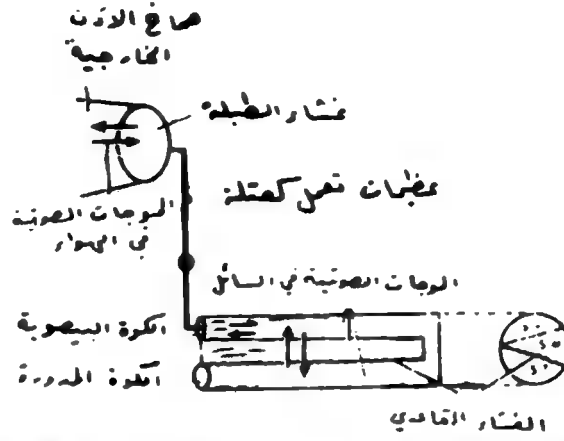 صماخ الاذن
الخارجية
غشاء الطبلة
عظيمات تعمل كعتلة
الموجات الصوتية
في الهواء
الموجات الصوتية في السائل
الكوة البيضوية
الكوة المدورة
الغشاء القاعدي